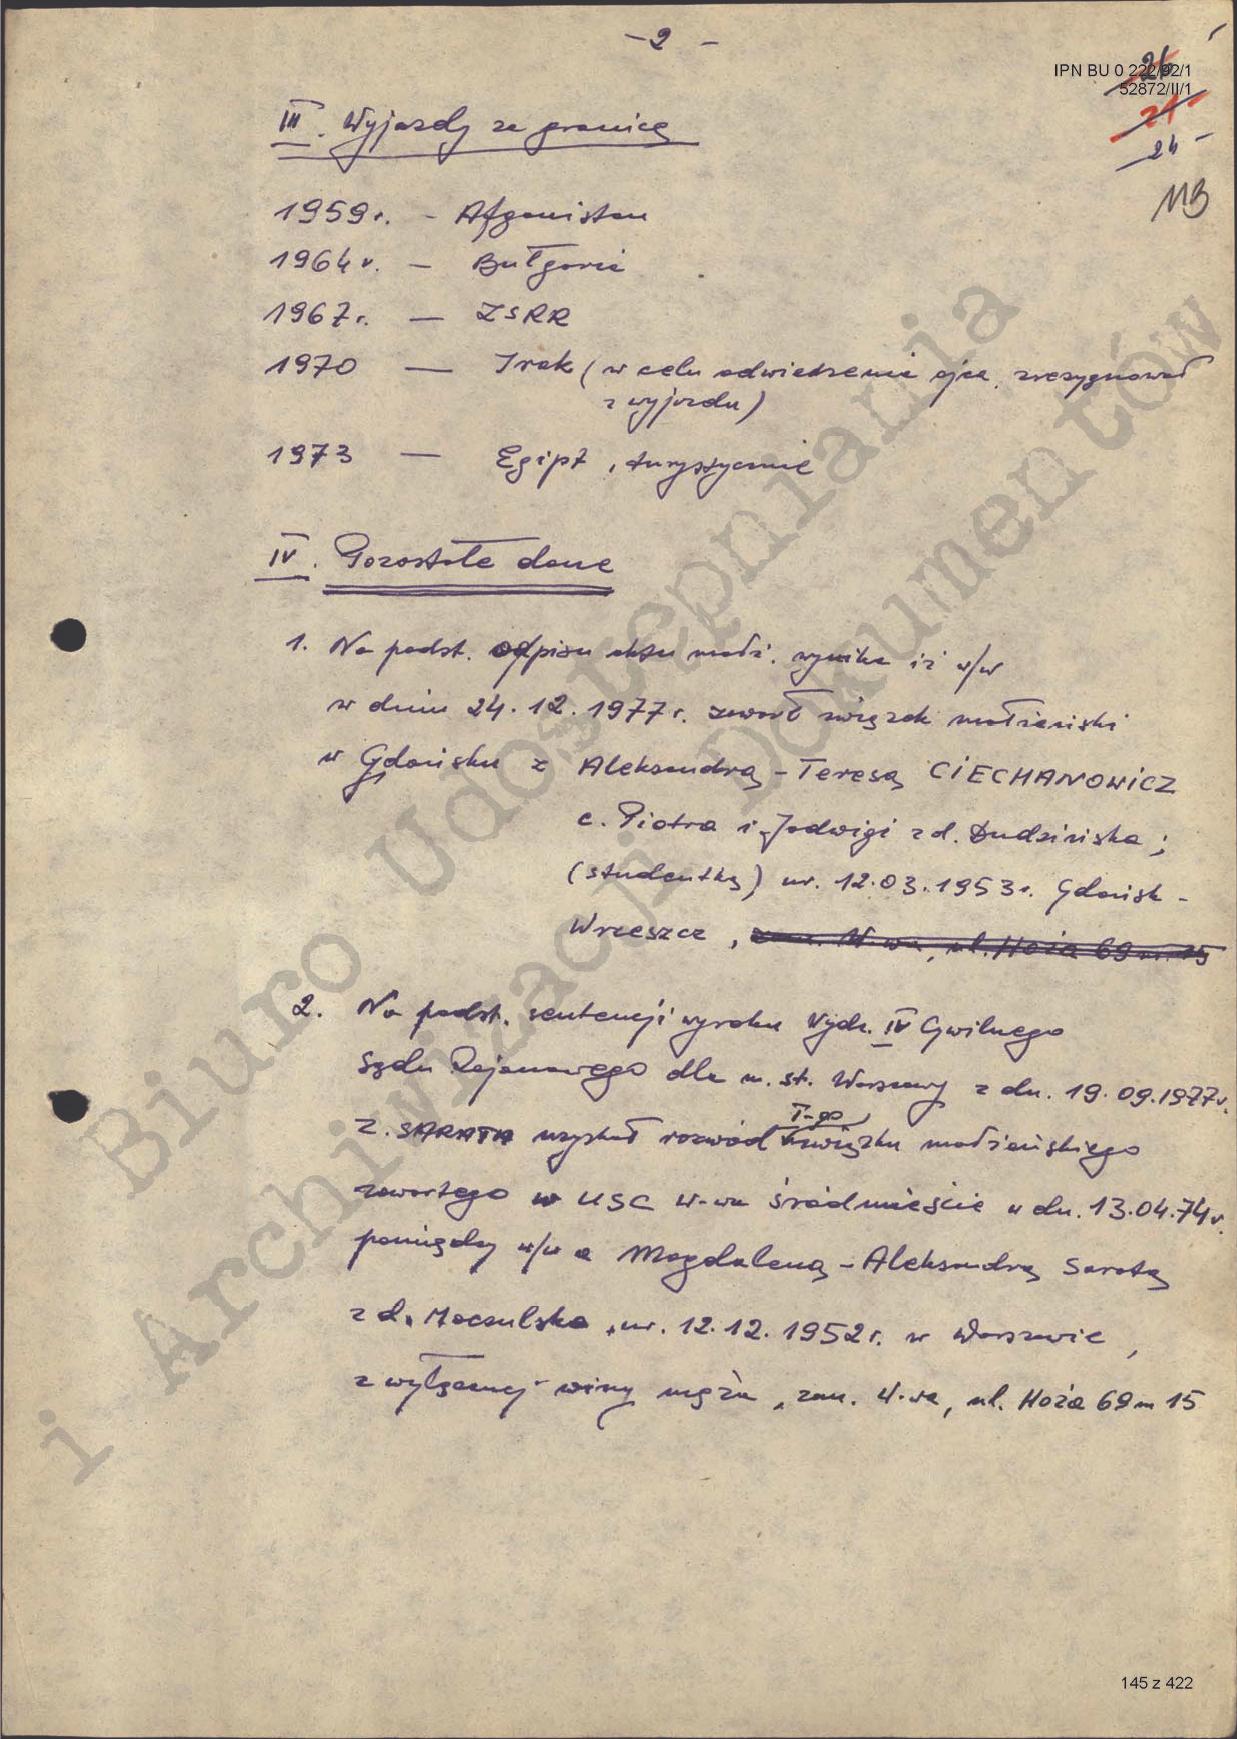 - 2 -
IPN BU 0 222/92/1
52872/II/1
26
21
24 -
113
III. Wyjazdy za granicę
1959 r. - Afganistan
1964 r. - Bułgaria
1967 r. - ZSRR
1970 - Irak (w celu odwiedzenia ojca, zrezygnował
z wyjazdu)
1973 - Egipt, turystycznie
IV. Pozostałe dane
1. Na podst. odpisu aktu małż. wynika iż w/w
w dniu 24.12.1977 r. zawarł związek małżeński
w Gdańsku z Aleksandrą-Teresą CIECHANOWICZ
c. Piotra i Jadwigi z d. Dudzińska;
(studentką) ur. 12.03.1953 r. Gdańsk -
Wrzeszcz, zam. W-wa, ul. Hoża 69 m. 15
2. Na podst. sentencji wyroku Wydz. IV Cywilnego
Sądu Rejonowego dla m. st. Warszawy z dn. 19.09.1977 r.
Z. SARATA uzyskał rozwód I-go związku małżeńskiego
zawartego w USC W-wa śródmieście w dn. 13.04.74 r.
pomiędzy w/w a Magdaleną-Aleksandrą Saratą
z d. Moczulska, ur. 12.12.1952 r. w Warszawie,
z wyłącznej winy męża, zam. W-wa, ul. Hoża 69 m 15
Biuro Udostępniania
i Archiwizacji Dokumentów
145 z 422